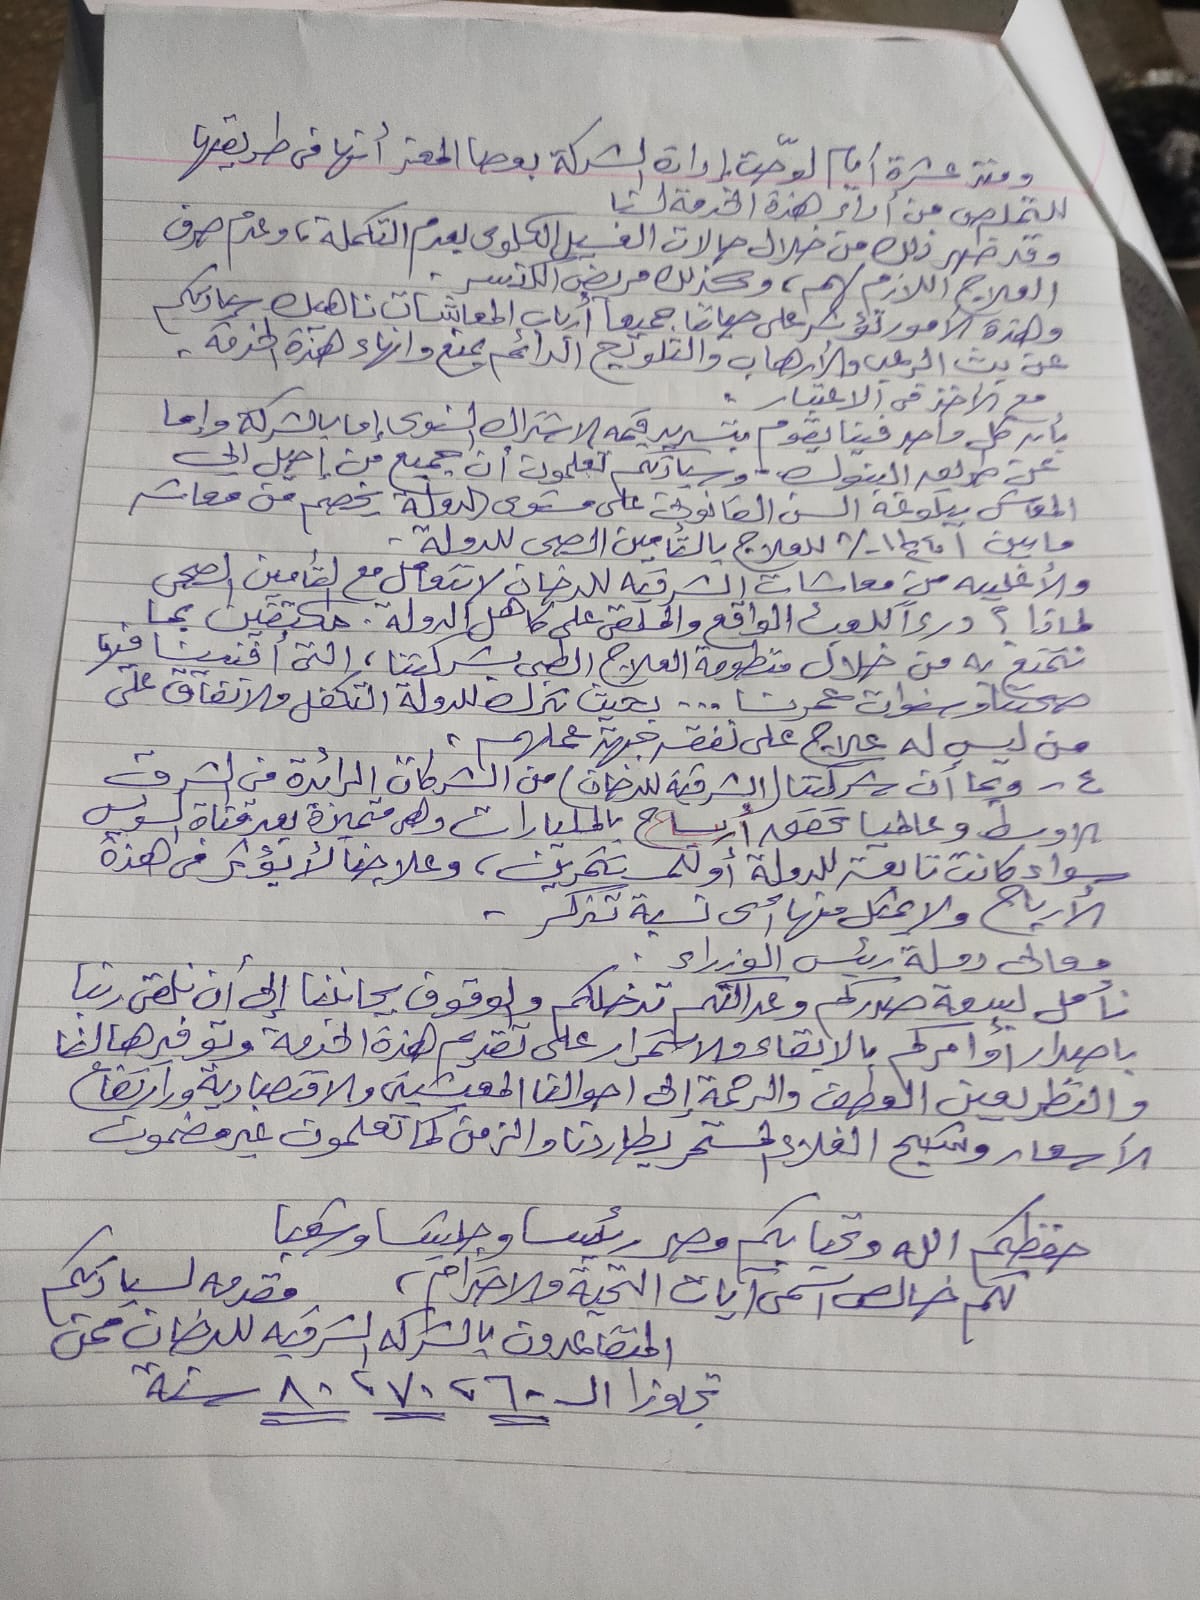 ومنذ عشرة أيام لوّحت إدارة الشركة بعصا المعز أنها فى طريقها
للتملص من أداء هذه الخدمة لنا
وقد ظهر ذلك من خلال حالات الغسيل الكلوى بعدم التكملة، وعدم صرف
العلاج اللازم لهم، وكذلك مريض الكنسر.
وهذه الأمور تؤثر على حياتنا جميعاً أرباب المعاشات ناهيك سيادتكم
عن بث الرعب والإرهاب والتلويح الدائم بمنع وانهاء هذه الخدمة.
مع الأخذ فى الاعتبار:
بأن كل واحد فينا يقوم بتسديد قيمة الاشتراك السنوى إما بالشركة وإما
عن طريق البنوك - وسيادتكم تعلمون أن جميع من إحيل إلى
المعاش ببلوغه السن القانونى على مستوى الدولة يخصم من معاشه
ما بين ١٪ للعلاج بالتأمين الصحى للدولة -
والأغلبيه من معاشات الشرقيه للدخان لا تتعامل مع التأمين الصحى
لماذا؟ درءاً للعبء الواقع والملقى على كاهل الدولة. مكتفين بما
نتمتع به من خلال منظومة العلاج الطبى بشركتنا، التى أفنينا فيها
صحتنا وسنوات عمرنا ... بحيث نترك للدولة التكفل والانفاق على
من ليس له علاج على نفقة جهة عملهم.
٤- وبما أن شركتنا (الشرقية للدخان) من الشركات الرائدة فى الشرق
الاوسط وعالمياً تحقق أرباح بالمليارات وهى متميزة بعد قناة السويس
سواء كانت تابعة للدولة أو لمستثمرين، وعلاجنا لا يؤثر فى هذة
الأرباح ولا يمثل منها أى نسبة تذكر -
معالى دولة رئيس الوزراء:
نأمل لسعة صدركم وعدالتكم تدخلكم والوقوف بجانبنا إلى أن نلقى ربنا
باصدار أوامركم بالابقاء والاستمرار على تقديم هذة الخدمة وتوفيرها لنا
والنظر بعين العطف والرحمة إلى احوالنا المعيشية والاقتصادية وارتفاع
الأسعار وشبح الغلاء المستمر يطاردنا والزمن كما تعلمون غير مضمون
حفظكم الله وتحيا بكم مصر رئيسا وجيشا وشعبا
لكم خالص أسمى آيات التحية والاحترام، مقدمه لسيادتكم
المتقاعدون بالشركه الشرقيه للدخان ممن
تجاوزا الـ ٦٠، ٧٠، ٨٠ سنة